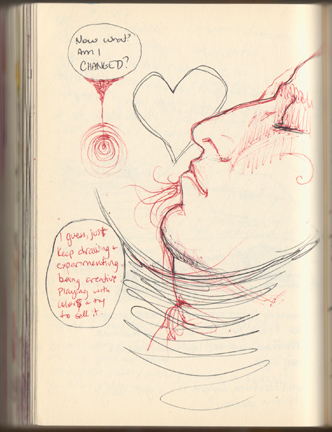 Now what?
Am I
CHANGED?
I guess, just
keep drawing +
experimenting
being creative
playing with
colors + try
to sell it.